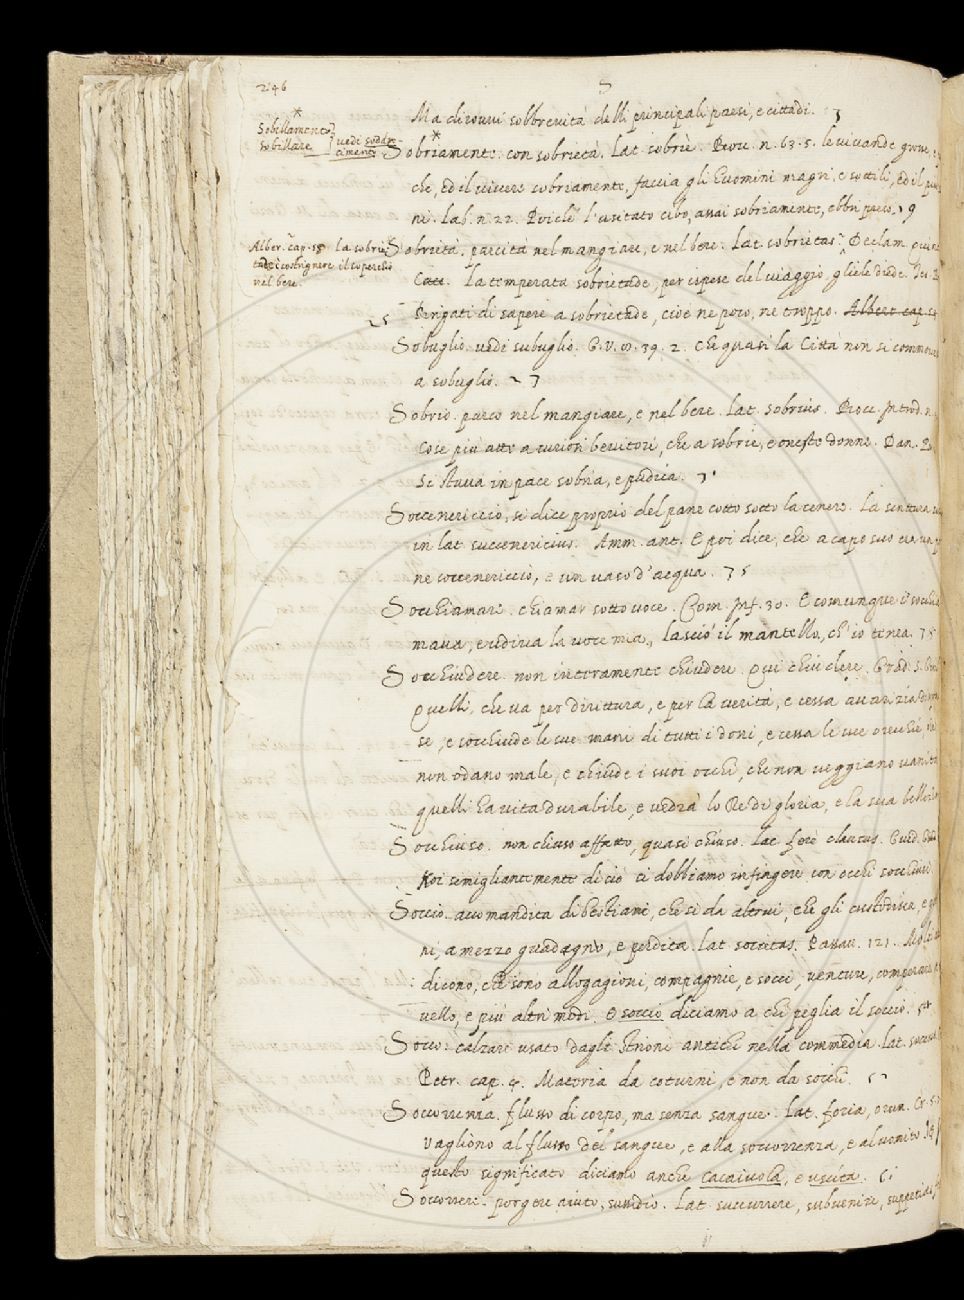 246
S
Ma di uomi sobbrevità delli principali paesi, e cittadi. 3
* Sobillamento
sobillare
vedi soddu-
cimento
Sobriamente. con sobrietà. Lat. sobriè. Prou. n. 63. 5. le vivande grosse,
che, ed il vivere sobriamente, faccia gli huomini magri, e sottili, ed il
ne. Lab. n. 22. Poiche l'usitato cibo, assai sobriamente, ebbri preso. 9
Alber. cap. 58 La sobrie-
tade è costrignere il soperchio
nel bere.
Sobrietà. parcità nel mangiare, e nel bere. Lat. sobrietas. Declam.
Catt. La temperata sobrietade, per ispese del viaggio, gliele diede.
25
Brigati di sapere a sobrietade, cioè nè poco, nè troppo. Albert. cap.
Sobuglio. vedi subuglio. G. V. 39. 2. che quasi la Città non si commosse
a sobuglio. 27
Sobrio. parco nel mangiare, e nel bere. Lat. sobrius. Bocc. Introd. n.
cose più atte a curiosi bevitori, che a sobrie, e oneste donne. Dan.
Si stava in pace sobria, e pudica. 7
Soccenericcio, si dice proprio del pane cotto sotto la cenere. La scrittura
in lat. succenericius. Amm. ant. E poi dice, che a capo suo era un
ne soccenericcio, e un vaso d'acqua. 75
Socchiamare. chiamar sotto voce. Com. Inf. 30. E comunque il socchia
mava, e udiva la voce mia, lasciò il mantello, ch'io tenea. 75
Socchiudere. non interamente chiudere. Qui chiudere.
Quelli, che va per dirittura, e per la verità, e cessa avarizia
se, e socchiude le sue mani di tutti i doni, e cessa le sue orecchie
non odano male, e chiude i suoi occhi, che non veggiano vanità
quelli ha vita durabile, e vedrà lo Re di gloria, e la sua bellezza
Socchiuso. non chiuso affatto, quasi chiuso. Lat. ferè clausus. Guid.
Noi simigliantemente di ciò ci dobbiamo infingere con occhi socchiusi.
Soccio. accomandita di bestiami, che si da altrui, che gli custodisca, e
ni, a mezzo guadagno, e perdita. Lat. societas. Passav. 121. Molti
dicono, che sono allogagioni, compagnie, e socci, venture,
vello, e più altri modi. E soccio diciamo a chi piglia il soccio.
Socco. calzare usato dagli strioni antichi nella commedia. Lat. soccus
Petr. cap. 4. Materia da coturni, e non da socchi.
Soccorrenza. flusso di corpo, ma senza sangue. Lat. foria, orum. Cr. 5.
Vagliono al flusso del sangue, e alla soccorrenza, e al vomito
questo significato diciamo anche cacaiuola, e uscita.
Soccorrere. porgere aiuto, sussidio. Lat. succurrere, subvenire,